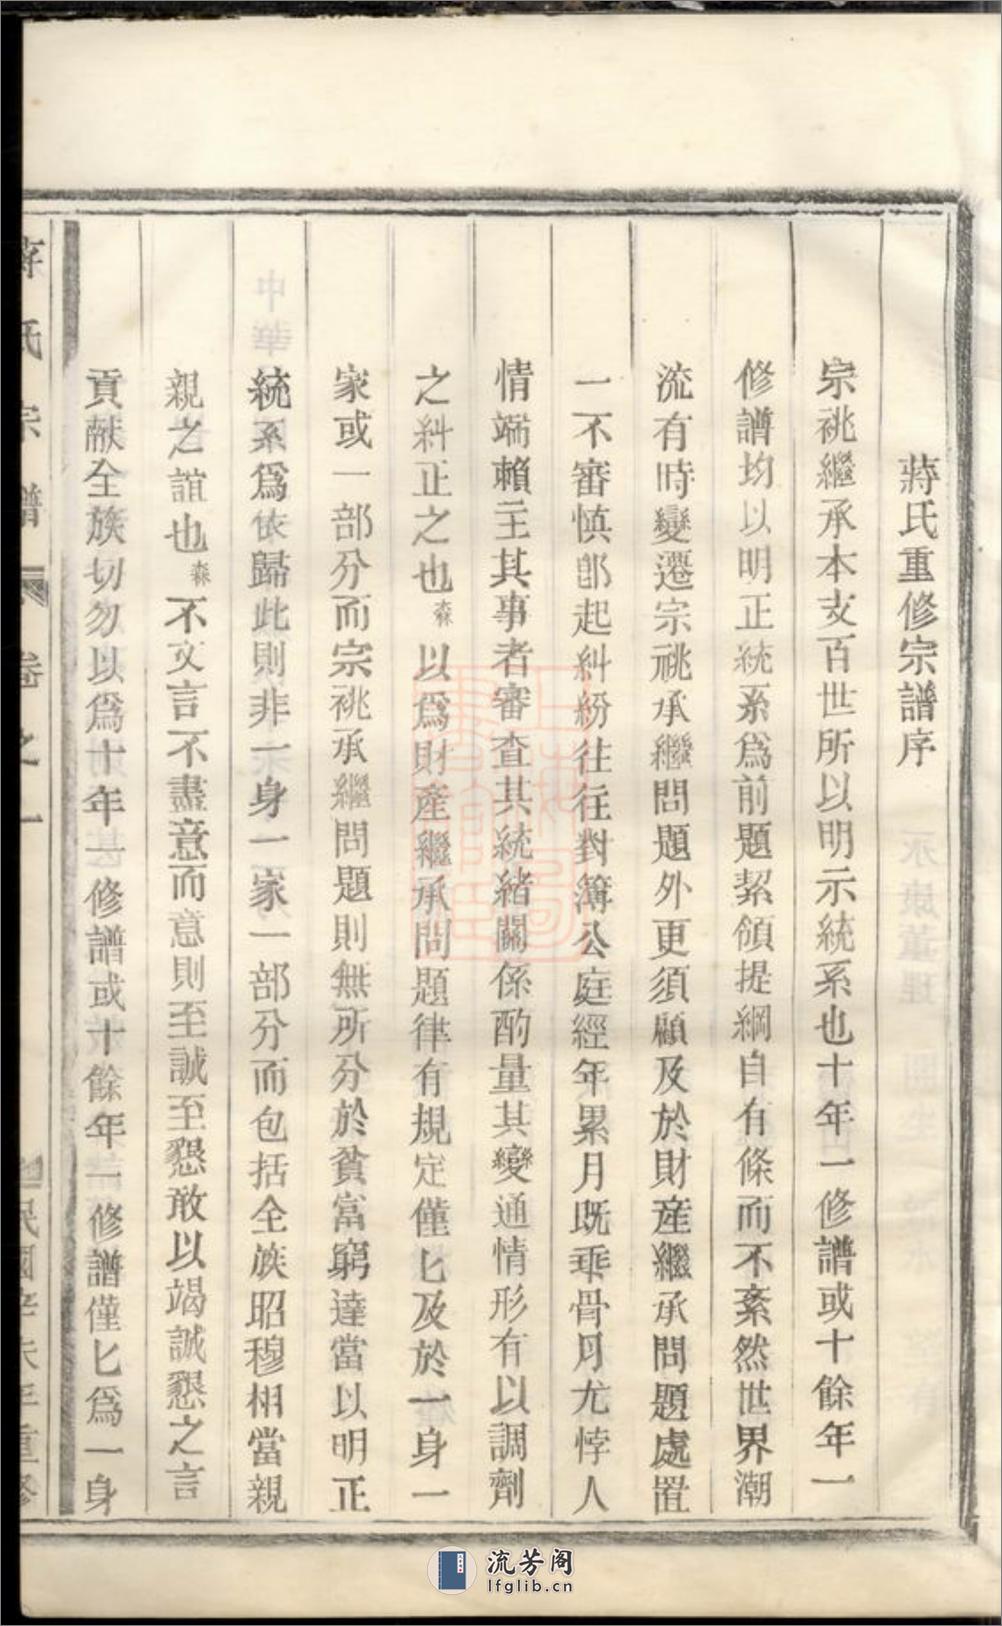 蔣氏重修宗譜序
宗祧繼承本支百世所以明示統系也十年一修譜或十餘年一
修譜均以明正統系爲前題絜領提綱自有條而不紊然世界潮
流有時變遷宗祧承繼問題外更須顧及於財產繼承問題處置
一不審慎卽起糾紛往往對簿公庭經年累月既乖骨月尤悖人
情端賴主其事者審查其統緒關係酌量其變通情形有以調劑
之糾正之也森以爲財產繼承問題律有規定僅匕及於一身一
家或一部分而宗祧承繼問題則無所分於貧富窮達當以明正
統系爲依歸此則非一身一家一部分而包括全族昭穆相當親
親之誼也森不文言不盡意而意則至誠至懇敢以竭誠懇之言
貢献全族切勿以爲十年一修譜或十餘年一修譜僅匕爲一身
蔣氏宗譜 卷之一 民國辛未年重修
流芳阁
lfglib.cn